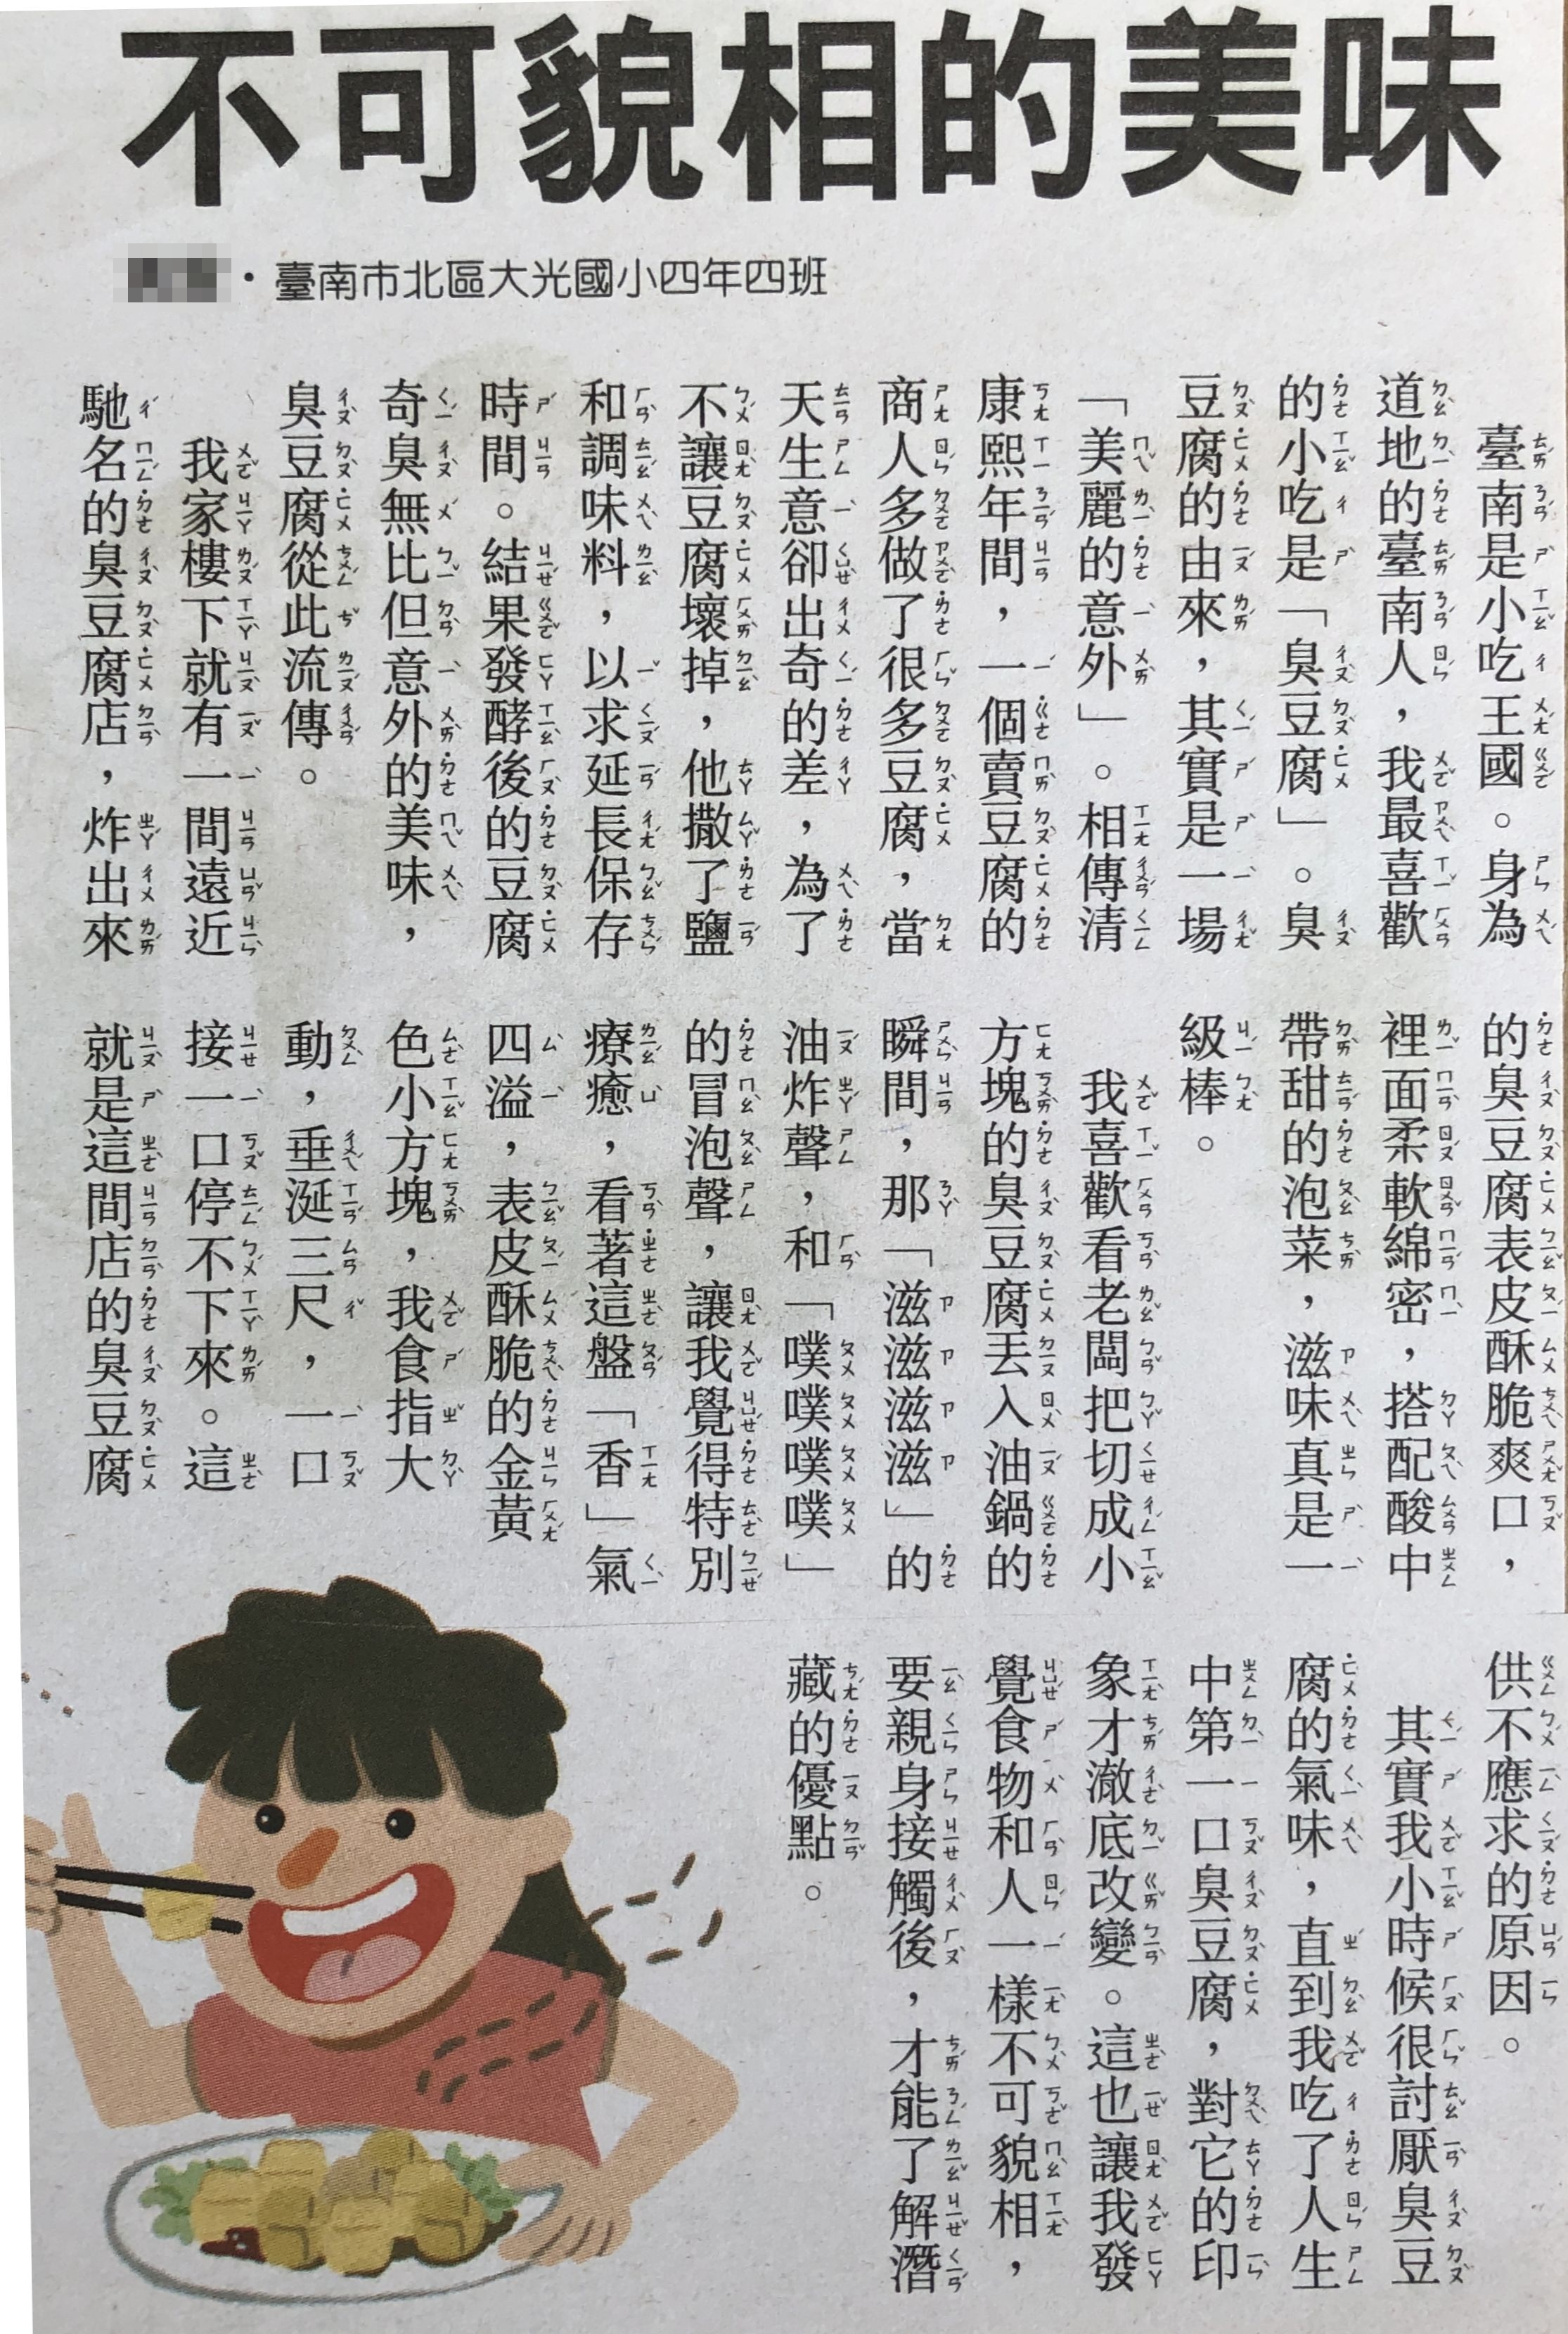 不可貌相的美味
・臺南市北區大光國小四年四班
臺南是小吃王國。身為
道地的臺南人，我最喜歡
的小吃是「臭豆腐」。臭
豆腐的由來，其實是一場
「美麗的意外」。相傳清
康熙年間，一個賣豆腐的
商人多做了很多豆腐，當
天生意卻出奇的差，為了
不讓豆腐壞掉，他撒了鹽
和調味料，以求延長保存
時間。結果發酵後的豆腐
奇臭無比但意外的美味，
臭豆腐從此流傳。
我家樓下就有一間遠近
馳名的臭豆腐店，炸出來
的臭豆腐表皮酥脆爽口，
裡面柔軟綿密，搭配酸中
帶甜的泡菜，滋味真是一
級棒。
我喜歡看老闆把切成小
方塊的臭豆腐丟入油鍋的
瞬間，那「滋滋滋」的
油炸聲，和「噗噗噗噗」
的冒泡聲，讓我覺得特別
療癒，看著這盤「香」氣
四溢，表皮酥脆的金黃
色小方塊，我食指大
動，垂涎三尺，一口
接一口停不下來。這
就是這間店的臭豆腐
供不應求的原因。
其實我小時候很討厭臭豆
腐的氣味，直到我吃了人生
中第一口臭豆腐，對它的印
象才澈底改變。這也讓我發
覺食物和人一樣不可貌相，
要親身接觸後，才能了解潛
藏的優點。